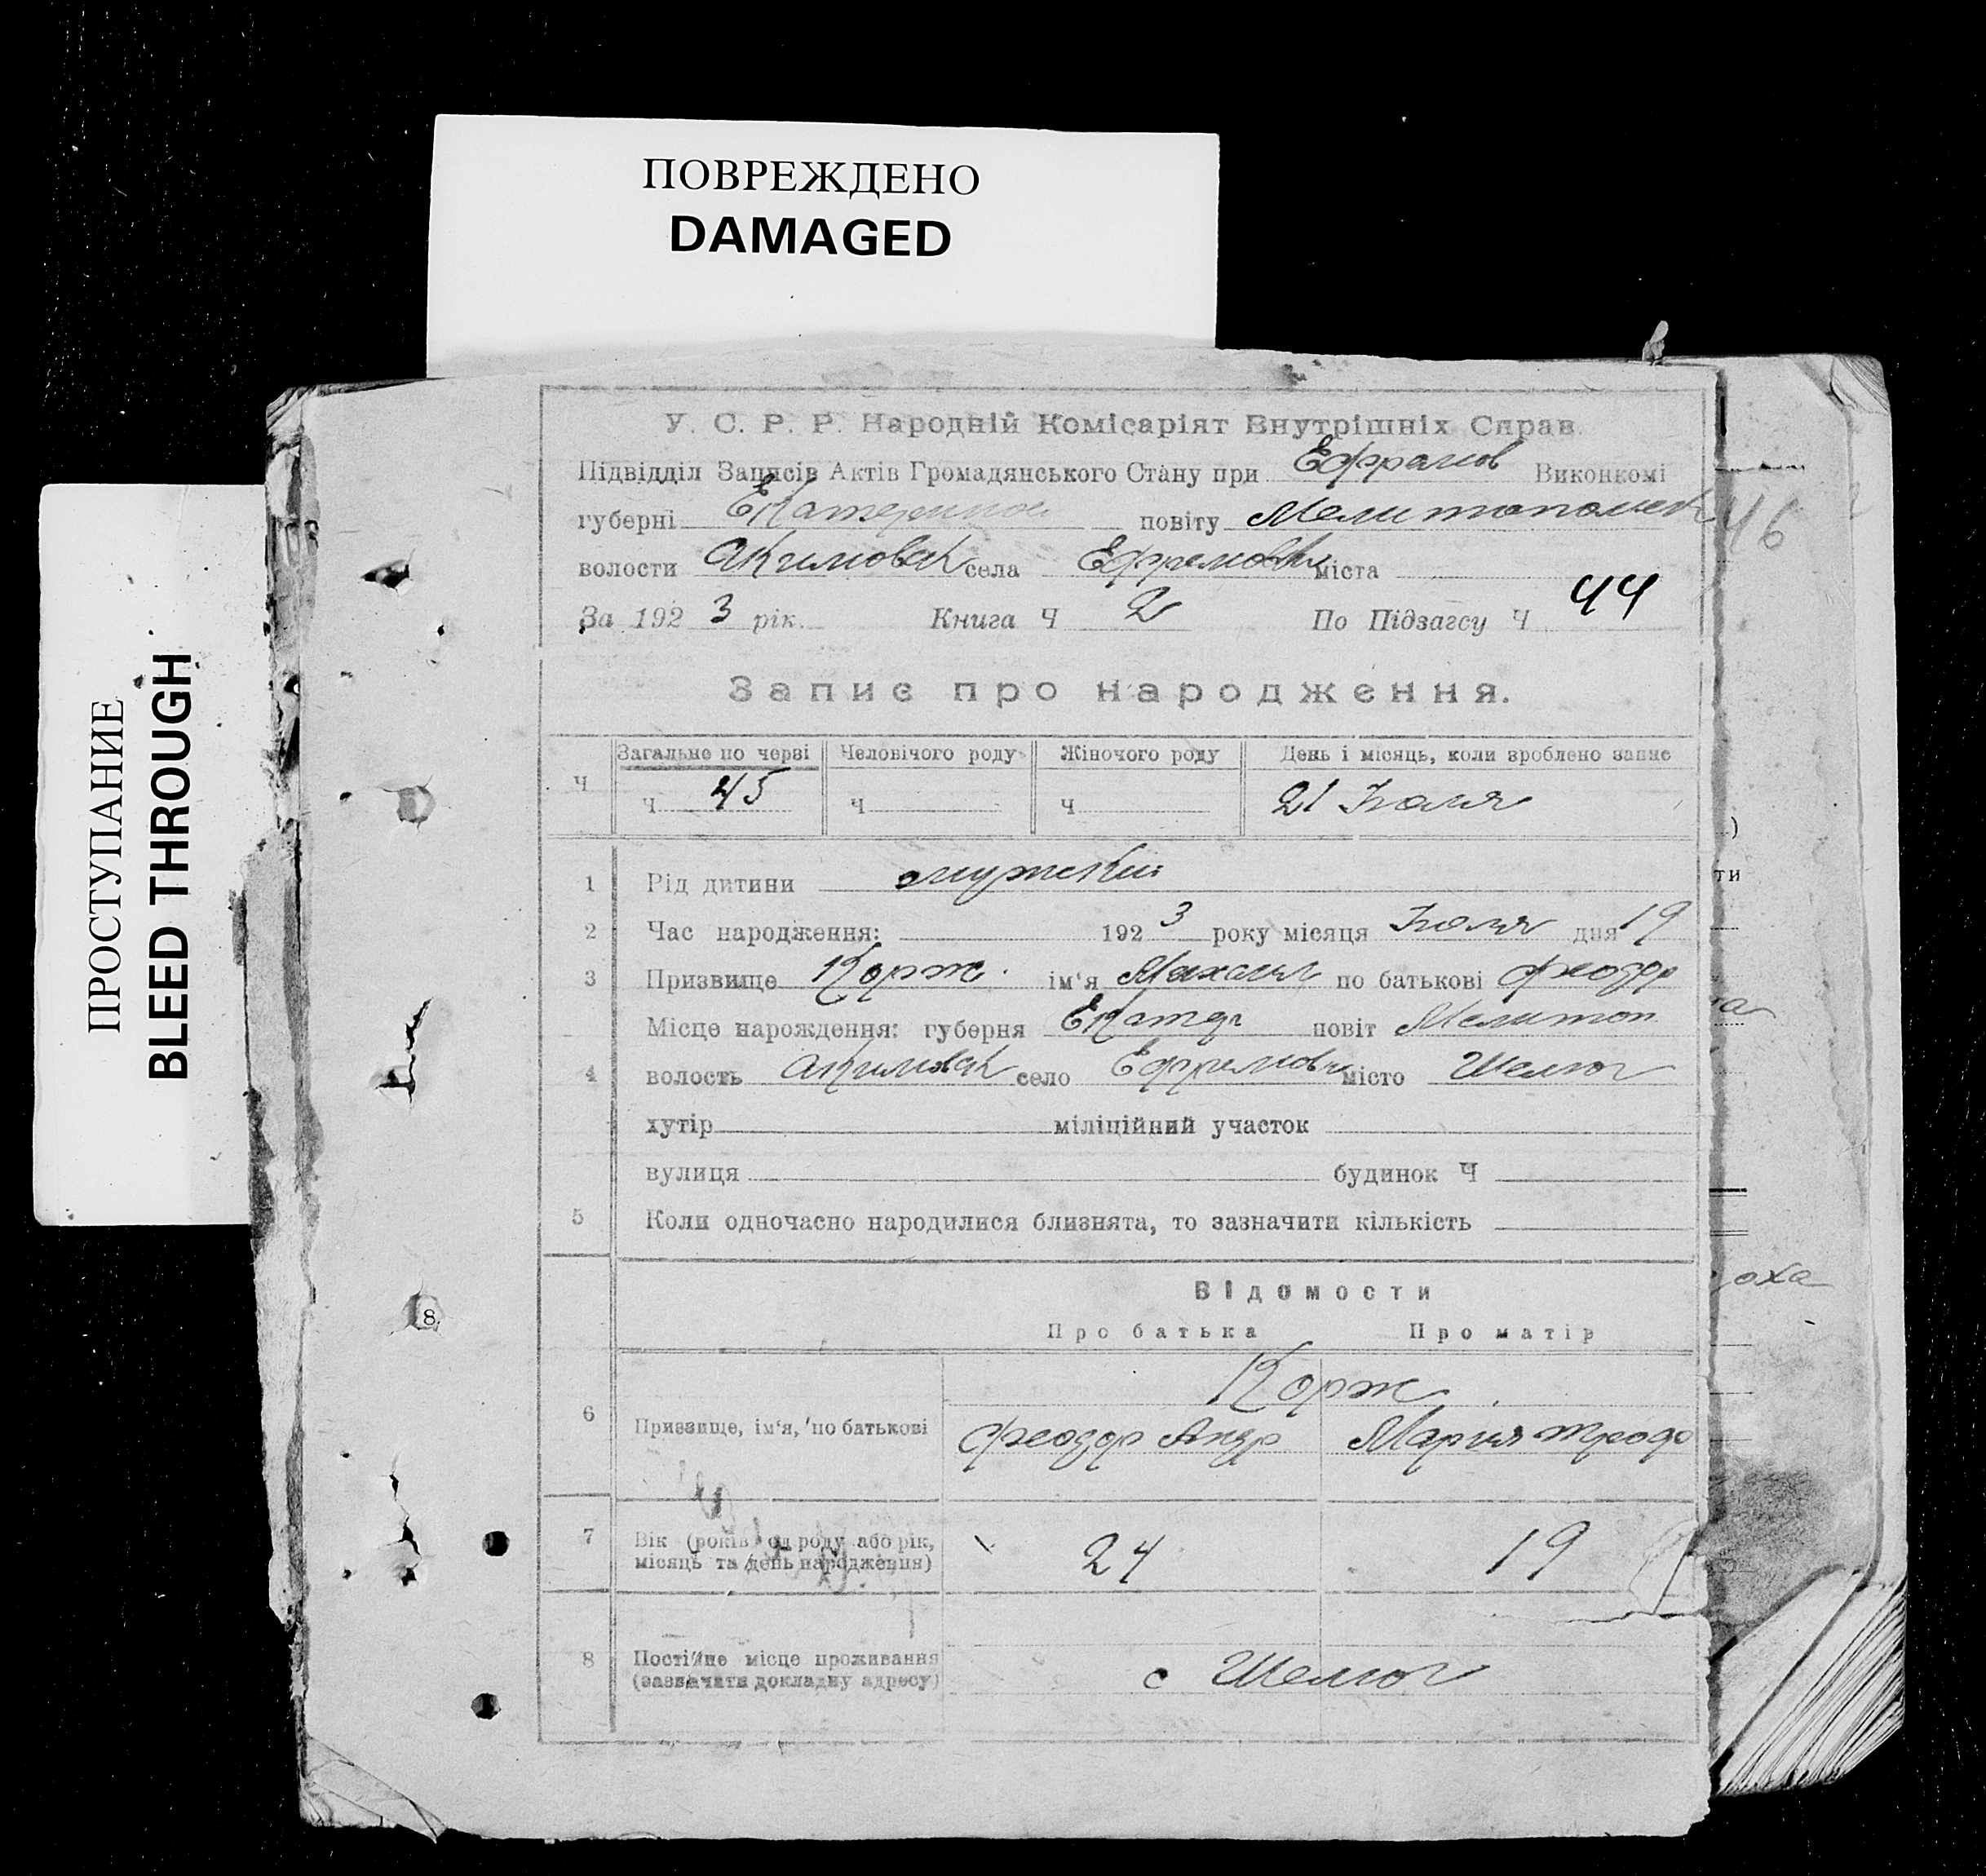 ПОВРЕЖДЕНО
DAMAGED
ПРОСТУПАНИЕ
BLEED THROUGH
У. С. Р. Р. Народній Комісаріят Внутрішніх Справ.
Підвідділ Записів Актів Громадянського Стану при Ефрамов Виконкомі
губерні Екатеринос повіту Мелитопольск
волости Акимовск села Ефремовки міста
За 1923 рік. Книга Ч 2 По Підзагсу Ч 44
46
Запис про народження.
Загальне по черві Человічого роду Жіночого роду День і місяць, коли зроблено запис
Ч Ч 45 Ч Ч 21 Июля
1 Рід дитини мужский
2 Час народження: 1923 року місяця Июля дня 19
3 Призвище Корж ім'я Михаил по батькові Феодор
Місце нарождення: губерня Екатер повіт Мелитоп
4 волость Акимовск село Ефремовк місто Шелюг
хутір міліційний участок
вулиця будинок Ч
5 Коли одночасно народилися близнята, то зазначити кількість
Відомости
Про батька Про матір
Корж
6 Призвище, ім'я, по батькові Феодор Андр Мария
7 Вік (років од роду або рік, 24 19
місяць та день народження)
8 Постійне місце проживання с Шелюг
(зазначити докладну адресу)
8
ти
оха